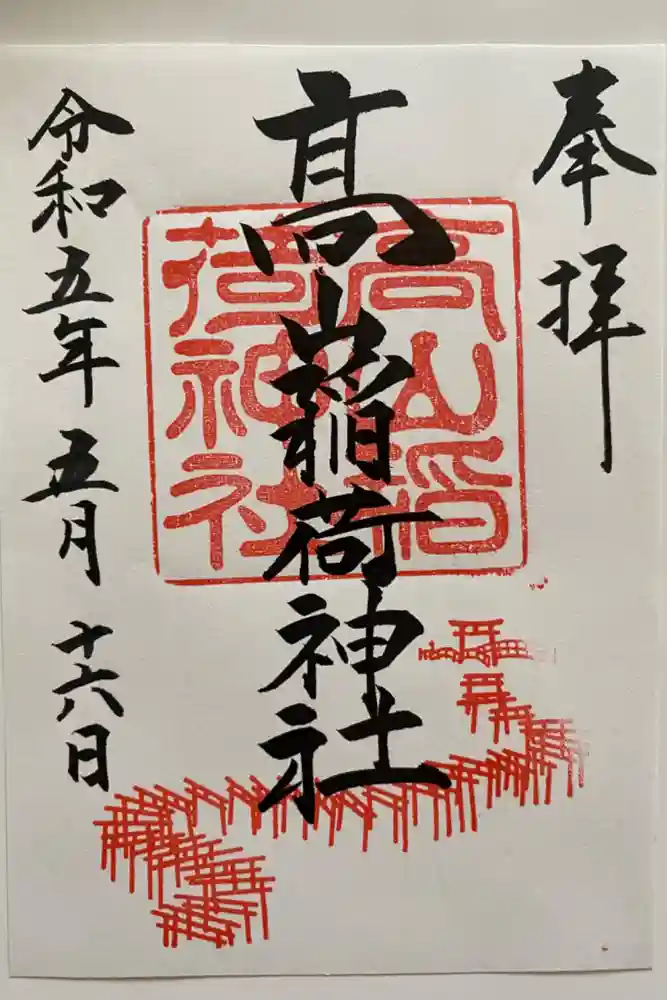 奉拝
高山稲荷神社
高山稲
荷神社
令和五年五月十六日